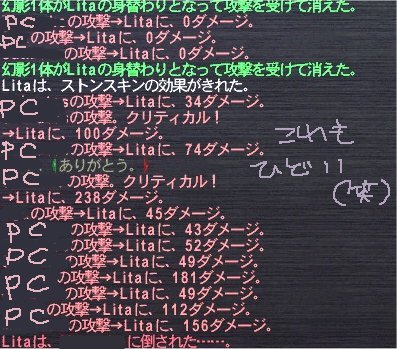 幻影1体がLitaの身替わりとなって攻撃を受けて消えた。
PC の攻撃→Litaに、0ダメージ。
PC の攻撃→Litaに、0ダメージ。
の攻撃→Litaに、0ダメージ。
幻影1体がLitaの身替わりとなって攻撃を受けて消えた。
Litaは、ストンスキンの効果がきれた。
PC sの攻撃→Litaに、34ダメージ。
の攻撃。クリティカル!
→Litaに、100ダメージ。
PC の攻撃→Litaに、74ダメージ。
(ありがとう。)
PC の攻撃。クリティカル!
→Litaに、238ダメージ。
の攻撃→Litaに、45ダメージ。
PC の攻撃→Litaに、43ダメージ。
の攻撃→Litaに、52ダメージ。
PC の攻撃→Litaに、49ダメージ。
PC の攻撃→Litaに、181ダメージ。
の攻撃→Litaに、49ダメージ。
PC の攻撃→Litaに、112ダメージ。
PC の攻撃→Litaに、156ダメージ。
Litaは、 に倒された……。
ひどい
(笑)